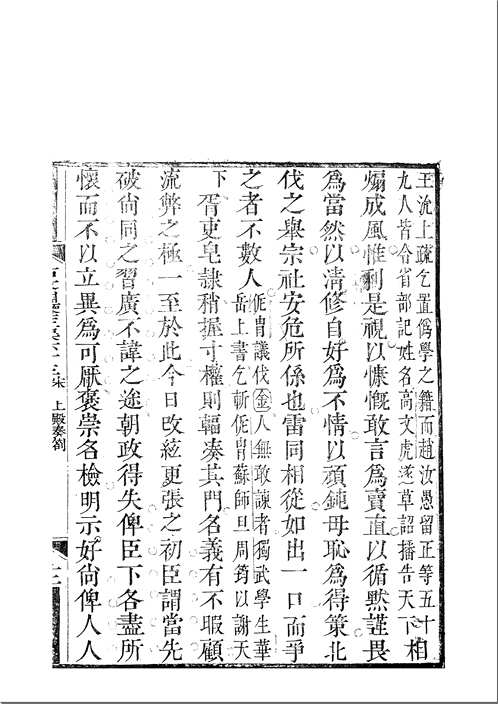 王沇上疏乞置僞學之籍而趙汝愚留正等五十
九人皆令省部記姓名高文虎遂草詔播告天下相
煽成風惟利是視以慷慨敢言爲賣直以循默謹畏
爲當然以清修自好爲不情以頑鈍毋恥爲得策北
伐之舉宗社安危所係也雷同相從如出一口而爭
之者不數人侂胄議伐金人無敢諫者獨武學生華
岳上書乞斬侂胄蘇師旦周筠以謝天
下胥吏皂隸稍握寸權則輻湊其門名義有不暇顧
流弊之極一至於此今日改絃更張之初臣謂當先
破尚同之習廣不諱之途朝政得失俾臣下各盡所
懷而不以立異爲可厭褒崇名檢明示好尚俾人人
上殿奏劄